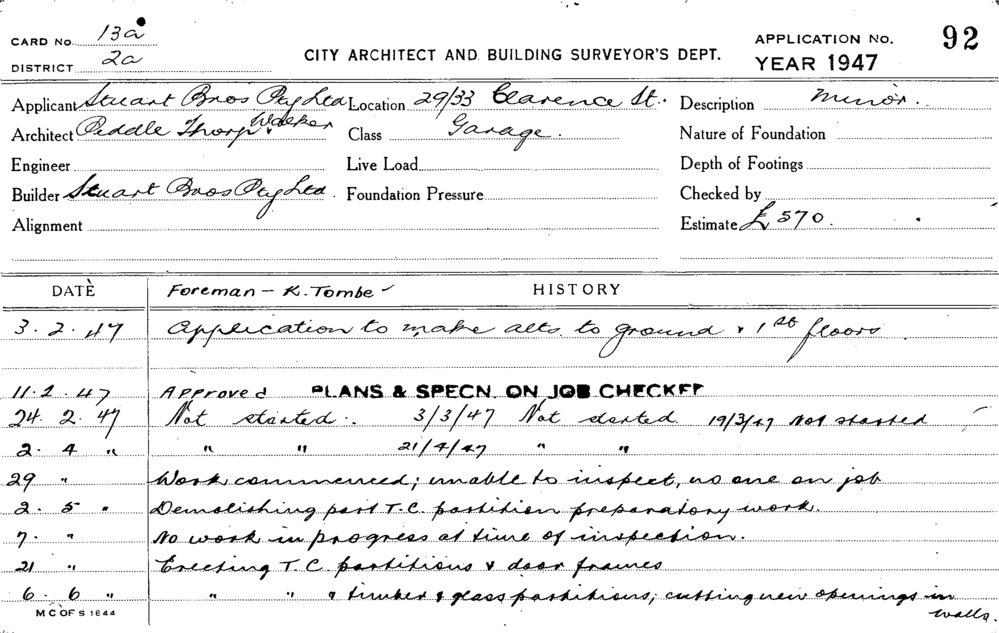 CARD No. 13a
DISTRICT 2a
CITY ARCHITECT AND BUILDING SURVEYOR'S DEPT.
APPLICATION No. 92
YEAR 1947
Applicant Stuart Bros Pty Ltd Location 29/33 Clarence St. Description Minor.
Architect Peddle Thorp & Walker Class Garage. Nature of Foundation
Engineer Live Load Depth of Footings
Builder Stuart Bros Pty Ltd. Foundation Pressure Checked by
Alignment Estimate £570
DATE Foreman - K. Tombe HISTORY
3. 2. 47 Application to make alts to ground & 1st floors
11. 2. 47 Approved PLANS & SPECN. ON JOB CHECKED
24. 2. 47 Not started. 3/3/47 Not started 19/3/47 Not started
2. 4 " " " 21/4/47 " "
29 " Work commenced; unable to inspect, no one on job
2. 5 " Demolishing part T.C. partition preparatory work.
7. " No work in progress at time of inspection.
21 " Erecting T.C. partitions & door frames
6. 6 " " " " timber & glass partitions; cutting new openings in walls.
M C OF S 1844